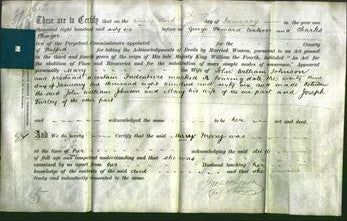 These are to Certify that on the third day of January in the year one
thousand eight hundred and sixty six before George Howard Watson and Charles
two of the Perpetual Commissioners appointed for the County
of for taking the Acknowledgments of Deeds by Married Women, pursuant to an Act passed
in the third and fourth years of the reign of His late Majesty King William the Fourth, intituled "An Act for
the abolition of Fines and Recoveries and for the substitution of more simple modes of assurance." Appeared
personally Mary the Wife of John William Johnson
and produced a certain Indenture marked bearing date the
day of January one thousand eight hundred and sixty six and made between
the said John William Johnson and Mary his wife of the one part and Joseph
of the other part
and acknowledged the same to be her act and deed
And We do hereby Certify that the said Mary was
at the time of her acknowledging the said deed
of full age and competent understanding and that she was
examined by us apart from her Husband touching her
knowledge of the contents of the said deed and that she
freely and voluntarily consented to the same.